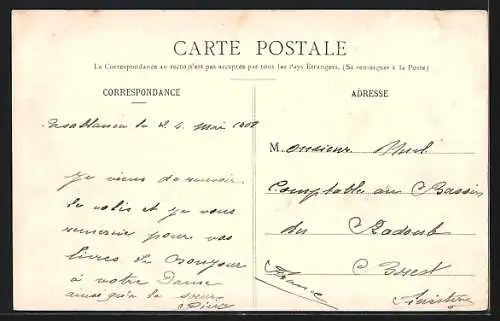 CARTE POSTALE
La Correspondance au recto n'est pas acceptée par tous les Pays Étrangers. (Se renseigner à la Poste)
CORRESPONDANCE
ADRESSE
Casablanca le 24 Mai
Je viens de recevoir
le colis et je vous
remercie pour vos
livres le Bonjour
à votre Dame
ainsi qu'à la sœur
Monsieur
Comptable au Bassin
du Radoub
Brest
Finistère
France